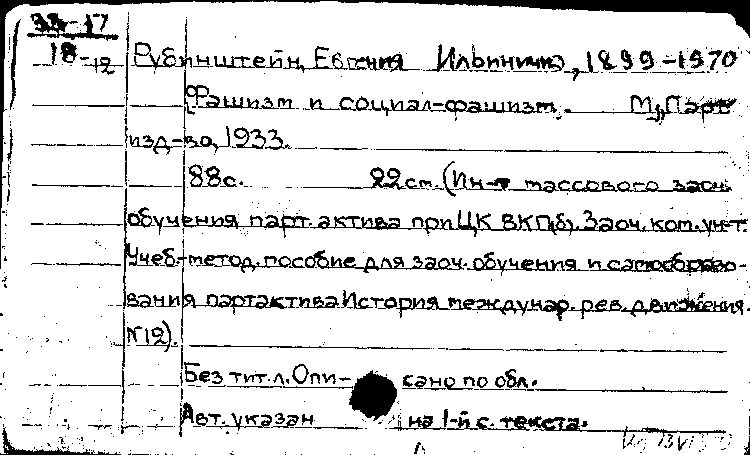 33-17
18-12
Рубинштейн, Евгения Ильинична, 1899-1970
Фашизм и социал-фашизм. М., Парт-
изд-во, 1933.
88с. 22см. (Ин-т массового заоч.
обучения парт. актива при ЦК ВКП(б). Заоч. ком. ун-т.
Учеб.-метод. пособие для заоч. обучения и самообразо-
вания партактива История междунар. рев. движения.
№12).
Без тит. л. Опи- сано по обл.
Авт. указан на 1-й с. текста.